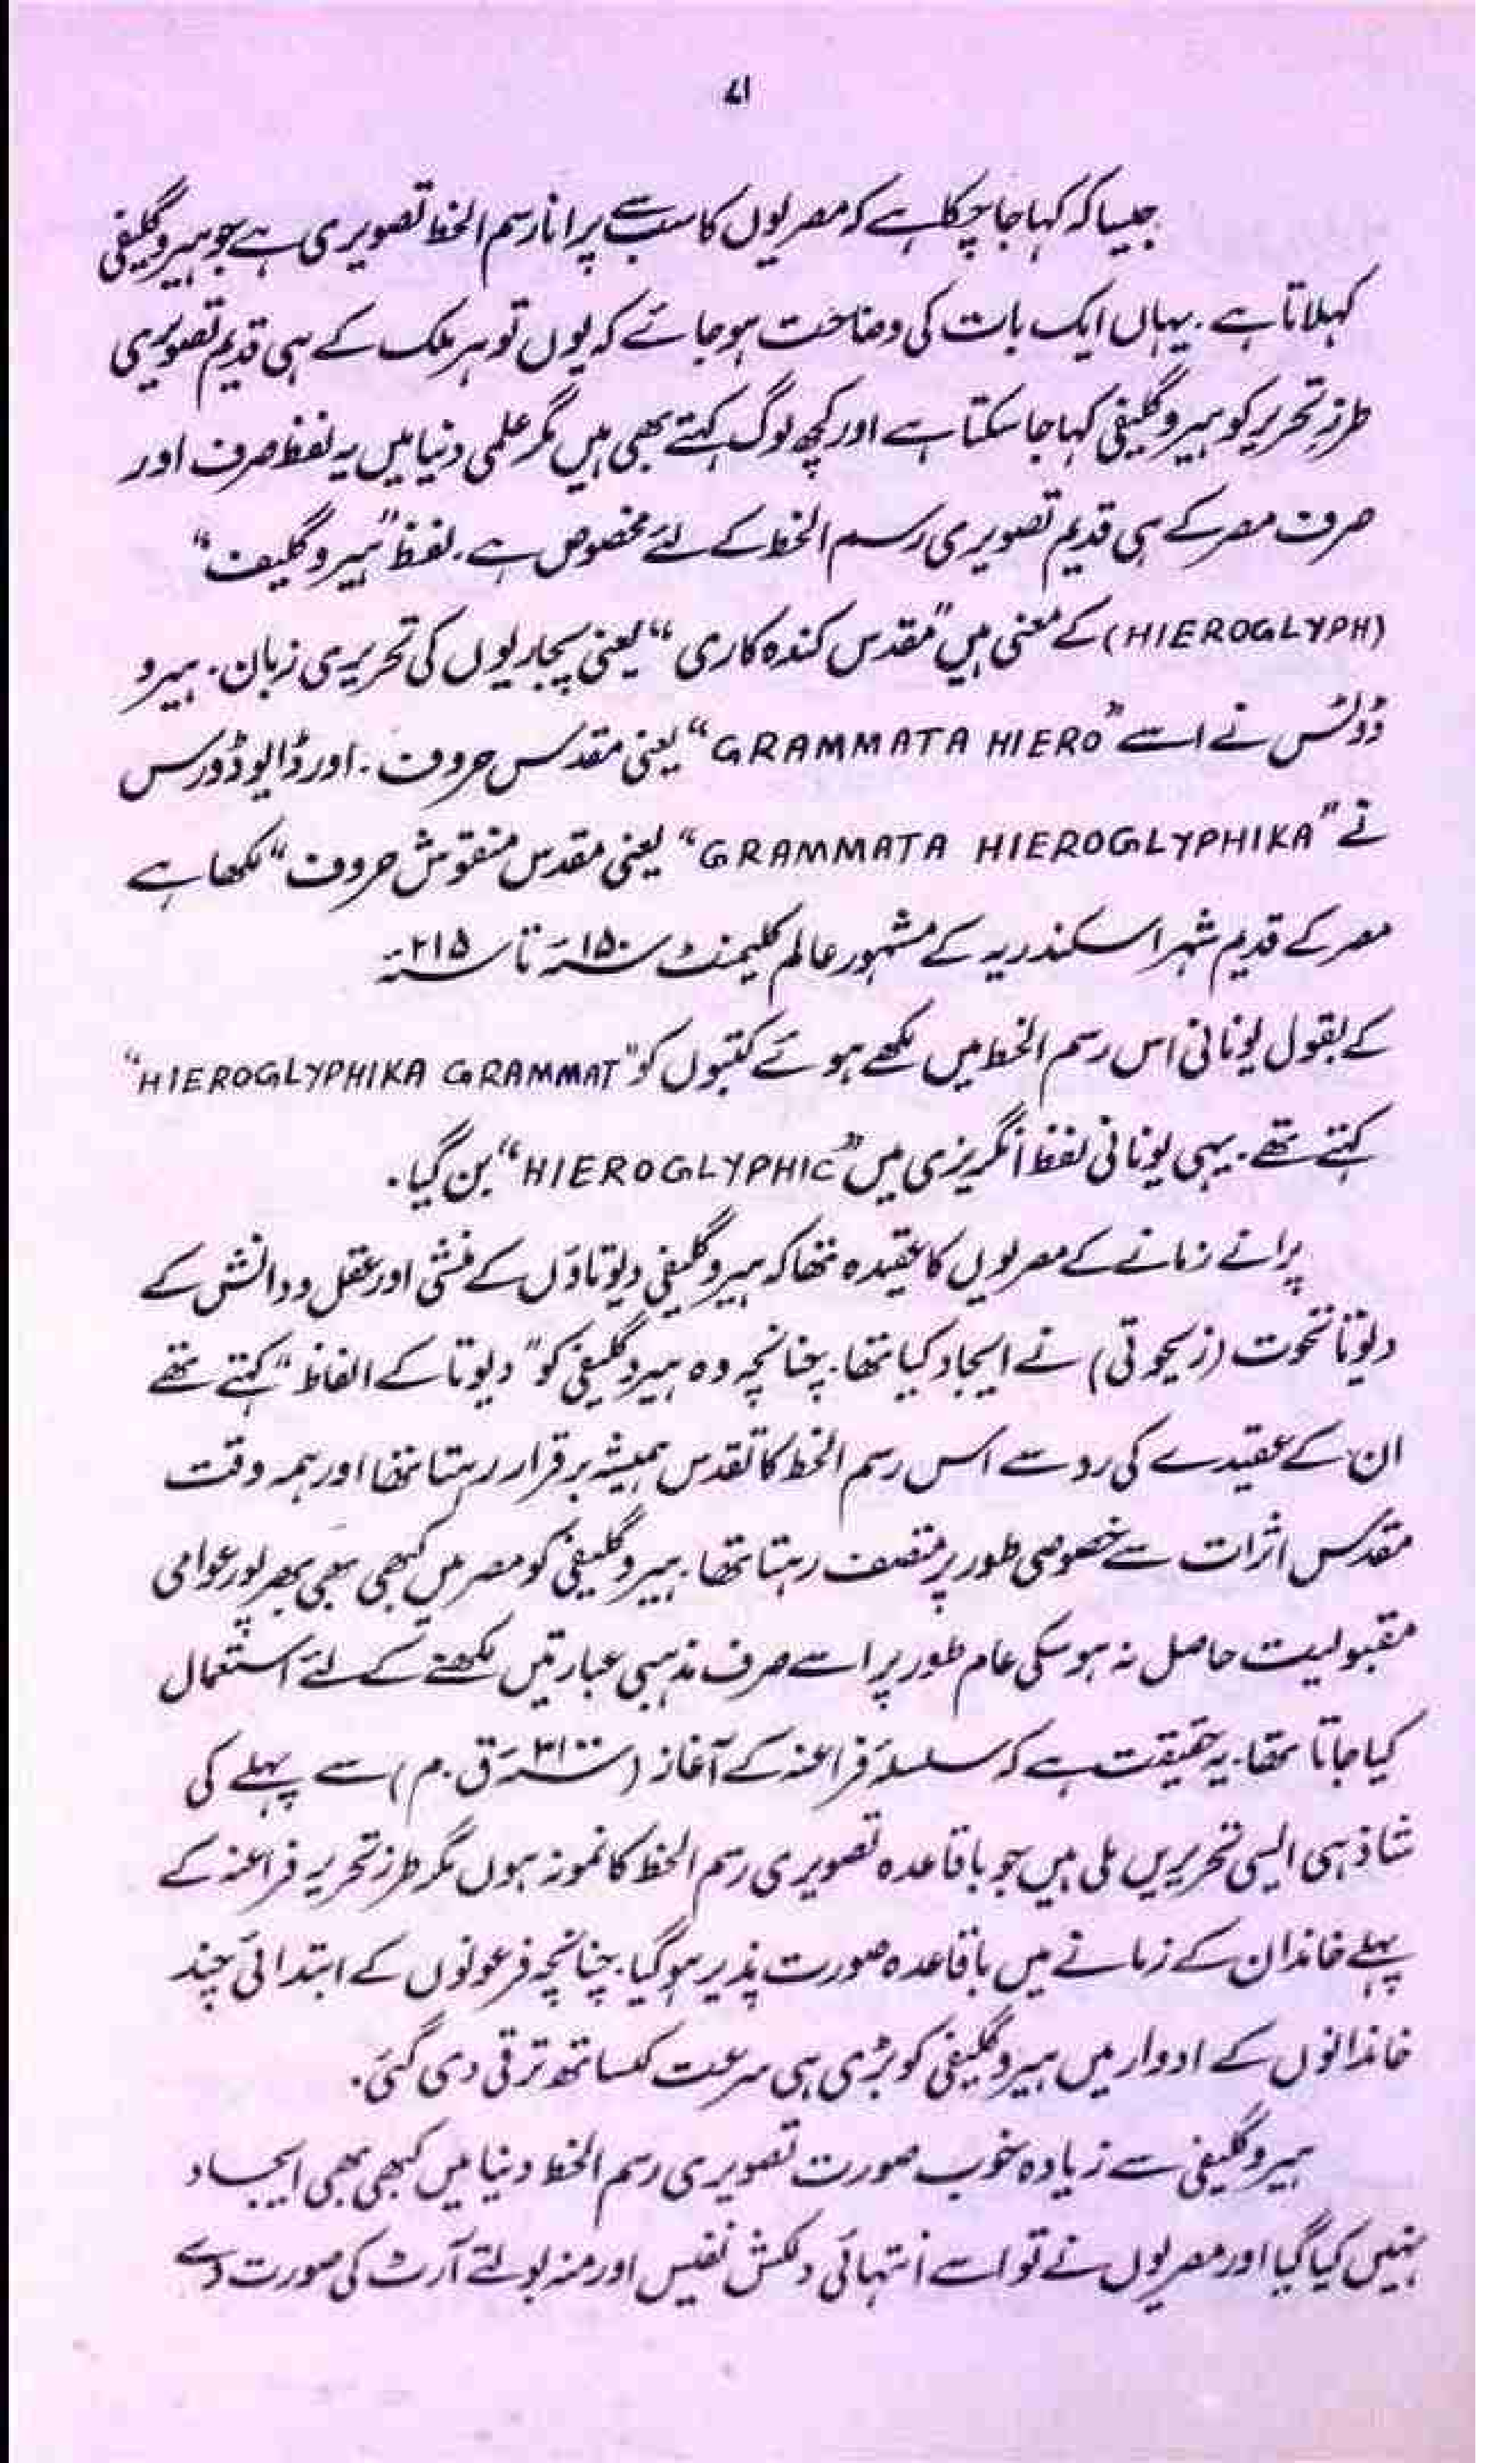 ۷۱
جیسا کہ کہا جا چکا ہے کہ مصریوں کا سب سے پرانا رسم الخط تصویری ہے جو ہیروگلیفی
کہلاتا ہے۔ یہاں ایک بات کی وضاحت ہو جائے کہ یوں تو ہر ملک کے ہی قدیم تصویری
طرزِ تحریر کو ہیروگلیفی کہا جا سکتا ہے اور کچھ لوگ کہتے بھی ہیں مگر علمی دنیا میں یہ لفظ صرف اور
صرف مصر کے ہی قدیم تصویری رسم الخط کے لئے مخصوص ہے۔ لفظ "ہیروگلیف"
(HIEROGLYPH) کے معنی ہیں "مقدس کندہ کاری" یعنی پجاریوں کی تحریری زبان۔ ہیرو
ڈوٹس نے اسے "GRAMMATA HIERO" یعنی مقدس حروف۔ اور ڈایوڈورس
نے "GRAMMATA HIEROGLYPHIKA" یعنی مقدس منقوش حروف" لکھا ہے
مصر کے قدیم شہر اسکندریہ کے مشہور عالم کلیمنٹ سنہ ۱۵۰ء تا سنہ ۲۱۵ء
کے بقول یونانی اس رسم الخط میں لکھے ہوئے کتبوں کو "HIEROGLYPHIKA GRAMMAT"
کہتے تھے۔ یہی یونانی لفظ انگریزی میں "HIEROGLYPHIC" بن گیا۔
پرانے زمانے کے مصریوں کا عقیدہ تھا کہ ہیروگلیفی دیوتاؤں کے منشی اور عقل و دانش کے
دیوتا تحوت (زیحوتی) نے ایجاد کیا تھا۔ چنانچہ وہ ہیروگلیفی کو "دیوتا کے الفاظ" کہتے تھے
ان کے عقیدے کی رو سے اس رسم الخط کا تقدس ہمیشہ برقرار رہتا تھا اور ہمہ وقت
مقدس اثرات سے خصوصی طور پر متصف رہتا تھا۔ ہیروگلیفی کو مصر میں کبھی بھی بھرپور عوامی
مقبولیت حاصل نہ ہو سکی عام طور پر اسے صرف مذہبی عبارتیں لکھنے کے لئے استعمال
کیا جاتا تھا۔ یہ حقیقت ہے کہ سلسلۂ فراعنہ کے آغاز (سنہ ۳۱۰۰ ق۔م) سے پہلے کی
شاذ ہی ایسی تحریریں ملی ہیں جو باقاعدہ تصویری رسم الخط کا نمونہ ہوں مگر طرز تحریر فراعنہ کے
پہلے خاندان کے زمانے میں باقاعدہ صورت پذیر ہو گیا۔ چنانچہ فرعونوں کے ابتدائی چند
خاندانوں کے ادوار میں ہیروگلیفی کو بڑی ہی سرعت کساتھ ترقی دی گئی۔
ہیروگلیفی سے زیادہ خوب صورت تصویری رسم الخط دنیا میں کبھی بھی ایجاد
نہیں کیا گیا اور مصریوں نے تو اسے انتہائی دلکش نفیس اور منہ بولتے آرٹ کی صورت دے